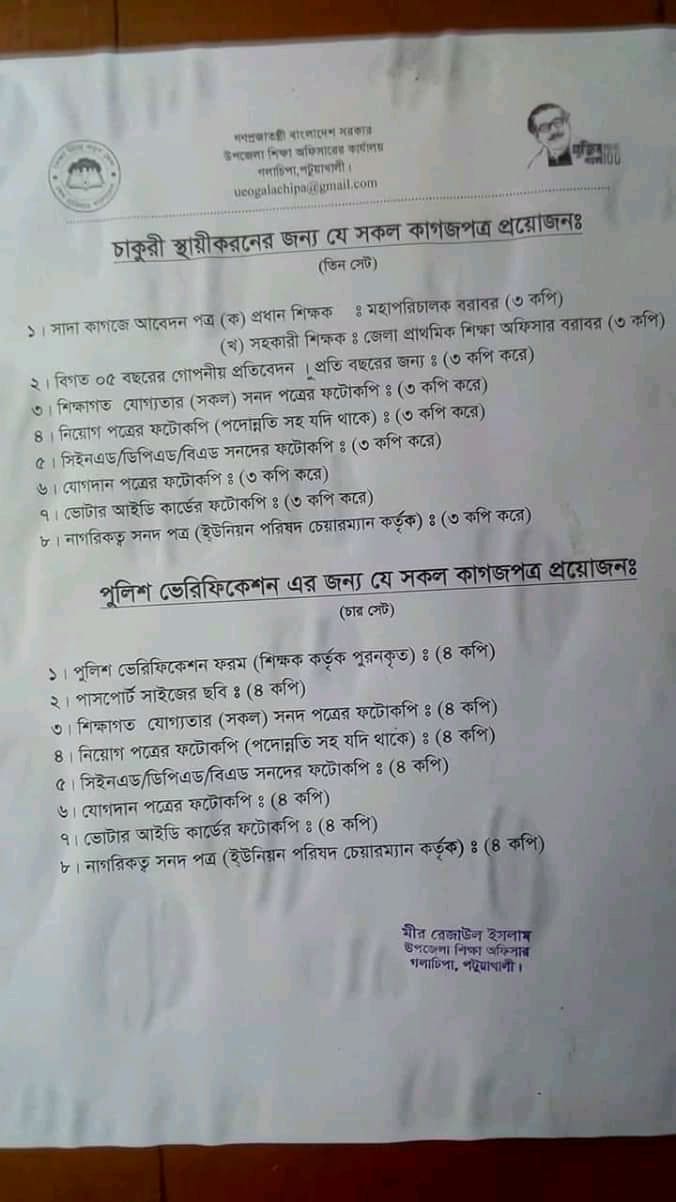 গণপ্রজাতন্ত্রী বাংলাদেশ সরকার
উপজেলা শিক্ষা অফিসারের কার্যালয়
গলাচিপা,পটুয়াখালী।
ueogalachipa@gmail.com
মুজিব
100
চাকুরী স্থায়ীকরনের জন্য যে সকল কাগজপত্র প্রয়োজনঃ
(তিন সেট)
১। সাদা কাগজে আবেদন পত্র (ক) প্রধান শিক্ষক : মহাপরিচালক বরাবর (৩ কপি)
(খ) সহকারী শিক্ষক : জেলা প্রাথমিক শিক্ষা অফিসার বরাবর (৩ কপি)
২। বিগত ০৫ বছরের গোপনীয় প্রতিবেদন । প্রতি বছরের জন্য : (৩ কপি করে)
৩। শিক্ষাগত যোগ্যতার (সকল) সনদ পত্রের ফটোকপি : (৩ কপি করে)
৪। নিয়োগ পত্রের ফটোকপি (পদোন্নতি সহ যদি থাকে) : (৩ কপি করে)
৫। সিইনএড/ডিপিএড/বিএড সনদের ফটোকপি : (৩ কপি করে)
৬। যোগদান পত্রের ফটোকপি : (৩ কপি করে)
৭। ভোটার আইডি কার্ডের ফটোকপি : (৩ কপি করে)
৮। নাগরিকত্ব সনদ পত্র (ইউনিয়ন পরিষদ চেয়ারম্যান কর্তৃক) : (৩ কপি করে)
পুলিশ ভেরিফিকেশন এর জন্য যে সকল কাগজপত্র প্রয়োজনঃ
(চার সেট)
১। পুলিশ ভেরিফিকেশন ফরম (শিক্ষক কর্তৃক পুরনকৃত) : (৪ কপি)
২। পাসপোর্ট সাইজের ছবি : (৪ কপি)
৩। শিক্ষাগত যোগ্যতার (সকল) সনদ পত্রের ফটোকপি : (৪ কপি)
৪। নিয়োগ পত্রের ফটোকপি (পদোন্নতি সহ যদি থাকে) : (৪ কপি)
৫। সিইনএড/ডিপিএড/বিএড সনদের ফটোকপি : (৪ কপি)
৬। যোগদান পত্রের ফটোকপি : (৪ কপি)
৭। ভোটার আইডি কার্ডের ফটোকপি : (৪ কপি)
৮। নাগরিকত্ব সনদ পত্র (ইউনিয়ন পরিষদ চেয়ারম্যান কর্তৃক) : (৪ কপি)
মীর রেজাউল ইসলাম
উপজেলা শিক্ষা অফিসার
গলাচিপা, পটুয়াখালী।